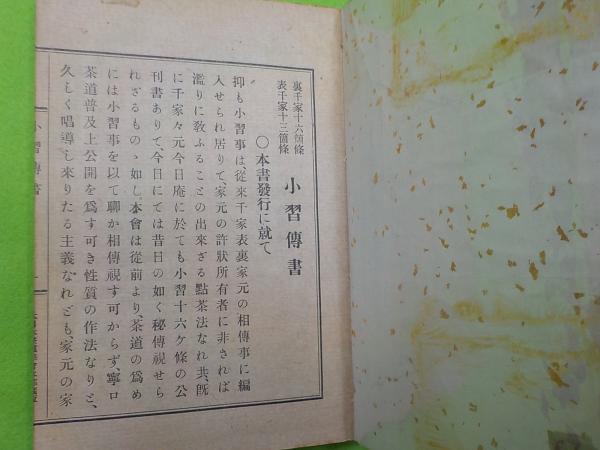 裏千家十六箇條
表千家十三箇條
小習傳書
〇本書發行に就て
抑も小習事は、從來千家表裏家元の相傳事に編
入せられ居りて、家元の許狀所有者に非されば
濫りに敎ふることの出來ざる點茶法なれ共、既
に千家々元今日庵に於ても小習十六ケ條の公
刊書ありて、今日にては昔日の如く秘傳視せら
れざるものゝ如し、本會は從前より、茶道の爲め
には小習事を以て聊か相傳視す可からず、寧ロ
茶道普及上公開を爲す可き性質の作法なりと、
久しく唱導し來りたる主義なれども、家元の家
小習傳書
一